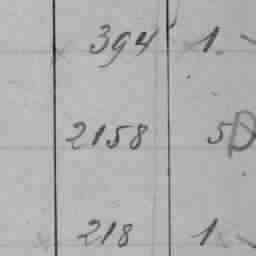 394 1.
2158 5
218 1